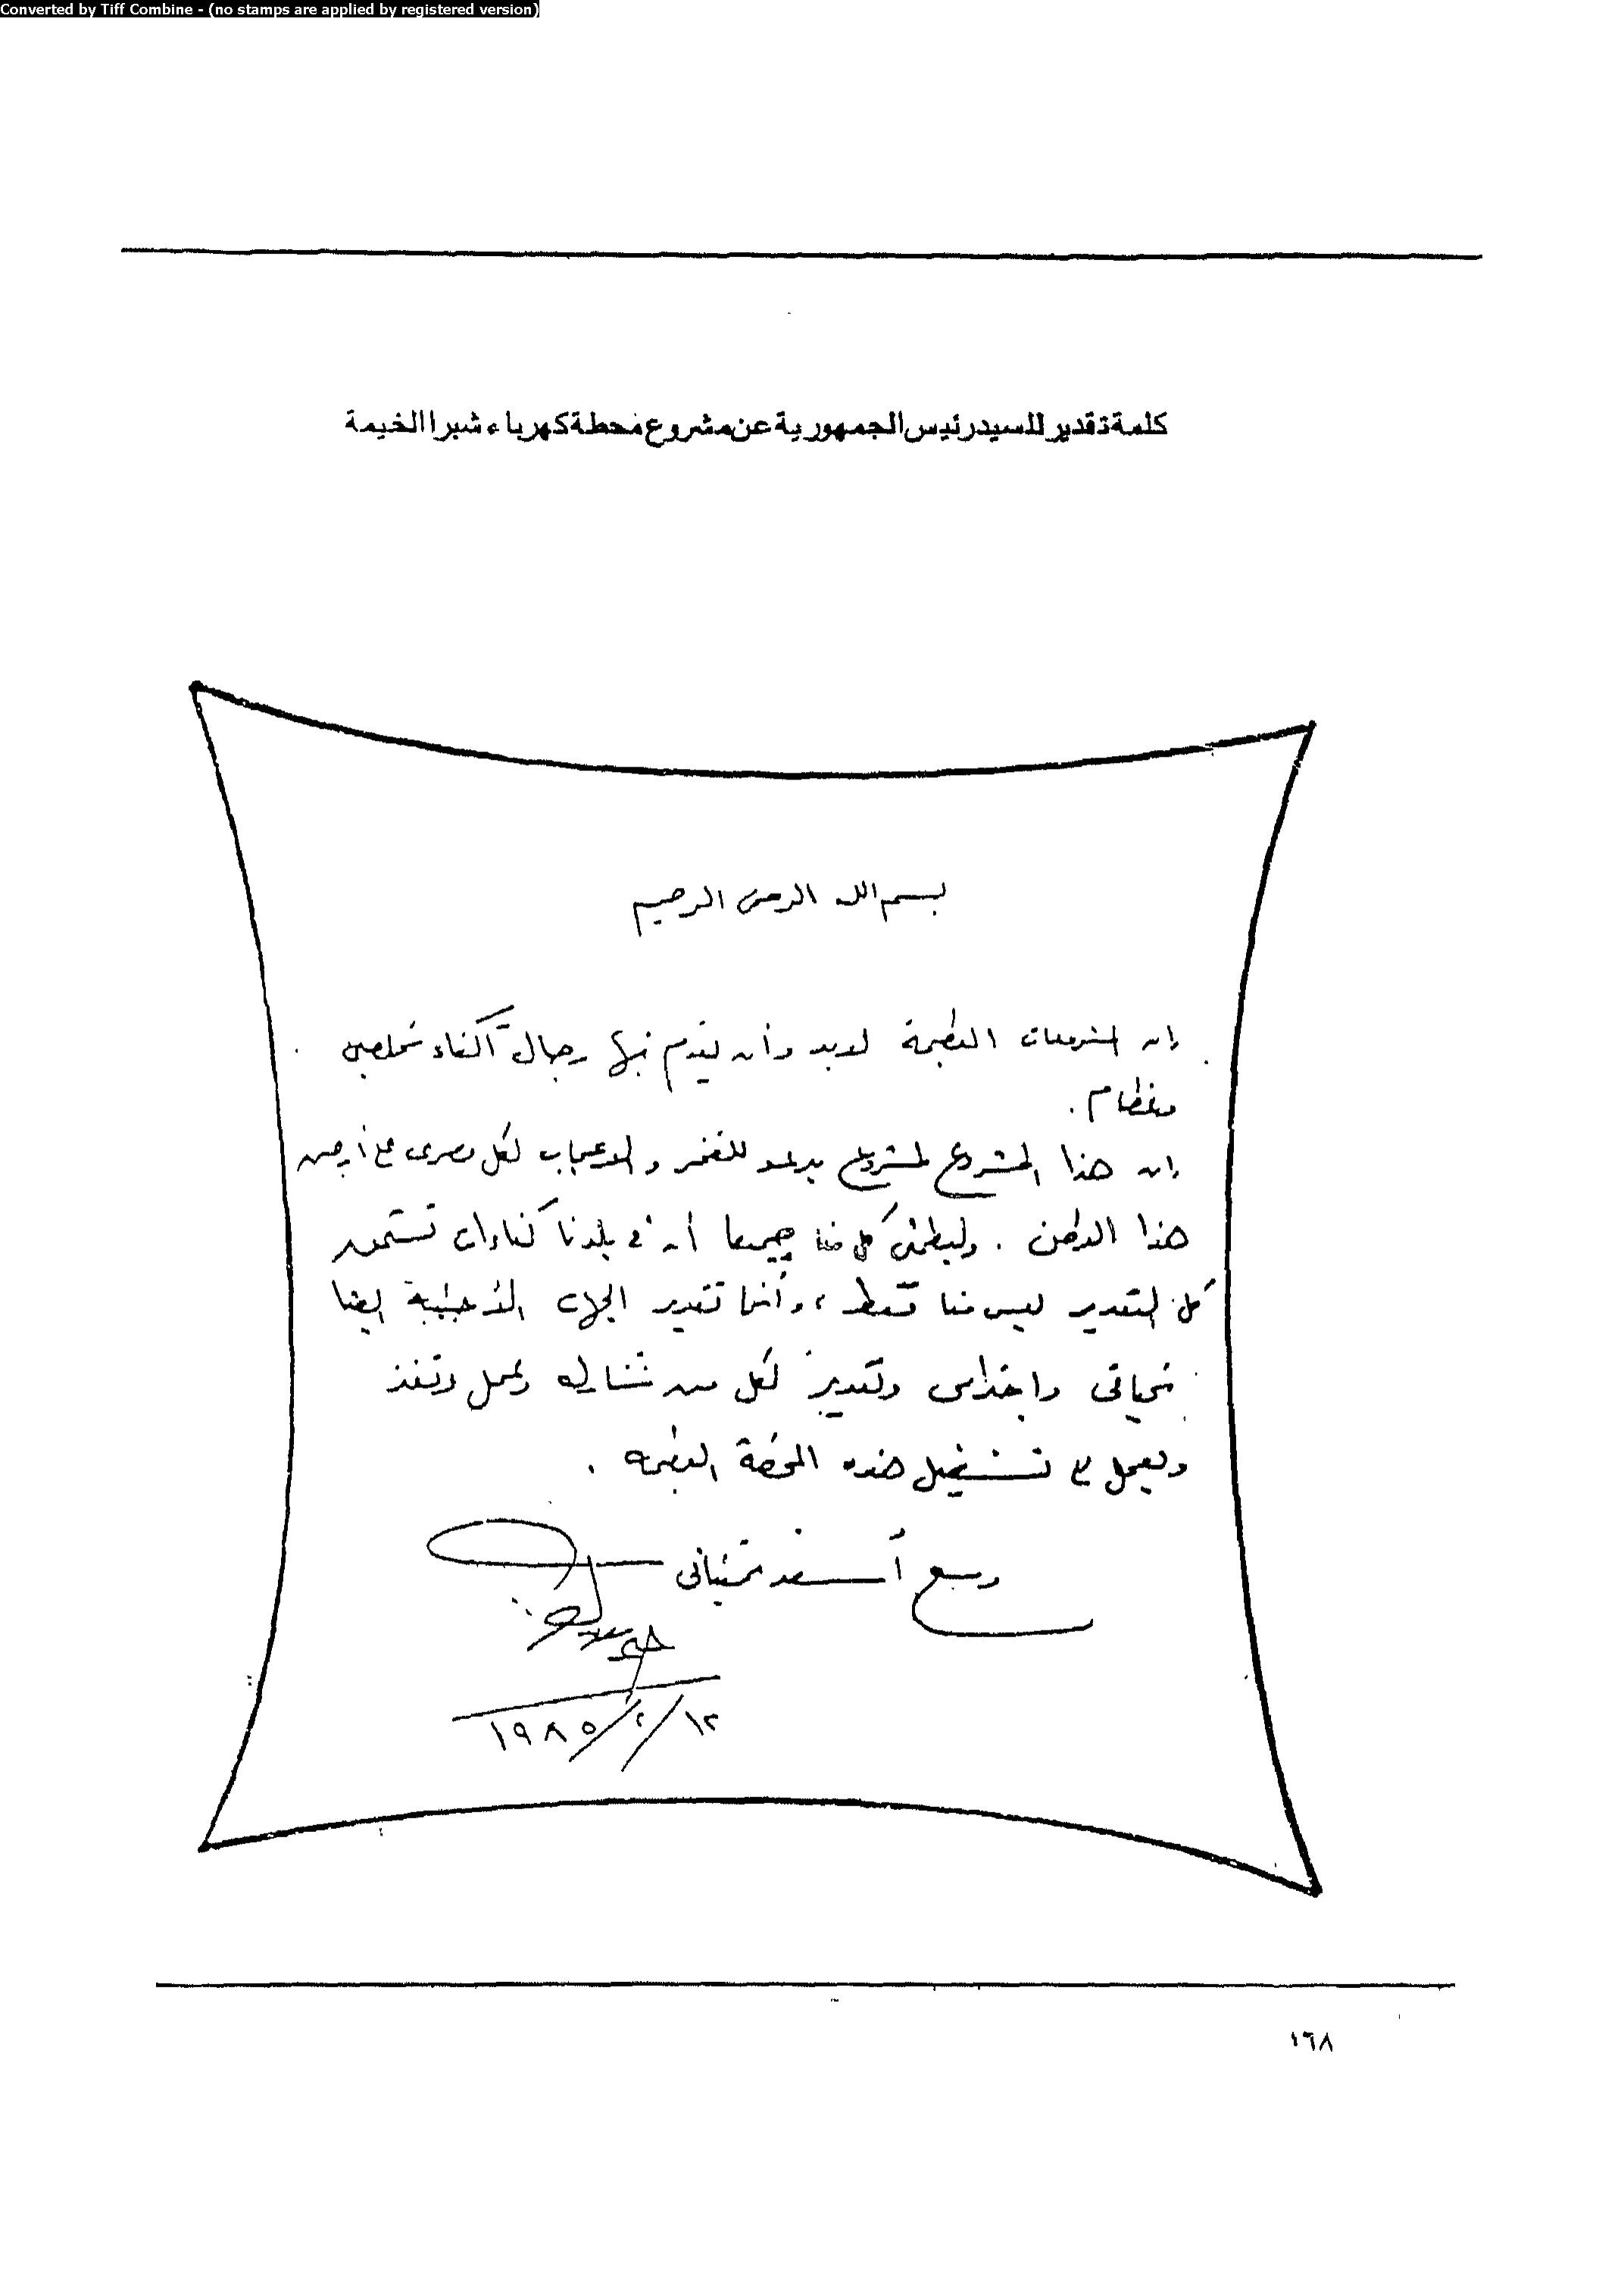 Converted by Tiff Combine - (no stamps are applied by registered version)
كلمة تقدير للسيد رئيس الجمهورية عن مشروع محطة كهرباء شبرا الخيمة
بسم الله الرحمن الرحيم
إن المشروعات العظيمة لابد وأن يقوم بها رجال أكفاء مخلصين
وعظام .
إن هذا المشروع لمشروع يدعو للفخر والاعجاب لكل مصرى على أرض
هذا الوطن . وليطمئن كل منا جميعا أن فى بلدنا كفاءات تستحق
كل التقدير ليس منا فقط ، وأنما تقدير الجهات الأجنبية ايضا
تحياتى واحترامى وتقديرى لكل من شارك وعمل ونفذ
ويعمل على تشغيل هذه المحطة العظيمه .
مع أسعد تمنياتى
١٢/٢/١٩٨٥
١٦٨